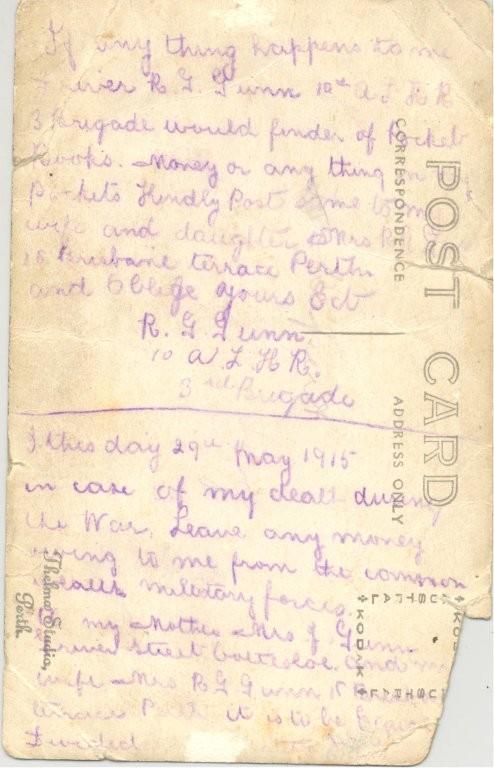 If any thing happens to me
Driver R. G. Gunn 10th A L H R
3 Brigade would finder of Pocket
Books. Money or any thing in
Pockets Kindly Post same to my
wife and daughter Mrs R G
15 Brisbane terrace Perth
and Oblige yours Ect
R. G. Gunn
10 A L H R.
3rd Brigade
I this day 29th May 1915
in case of my death during
the War. Leave any money
owing to me from the common
wealth military forces.
my Mother Mrs J Gunn
street Cottesloe. and my
wife Mrs R G Gunn 15
terrace Perth it is to be
Divided
POST CARD
CORRESPONDENCE
ADDRESS ONLY
Thelma Studio,
Perth.
KODAK
AUSTRAL
KODAK
AUSTRAL